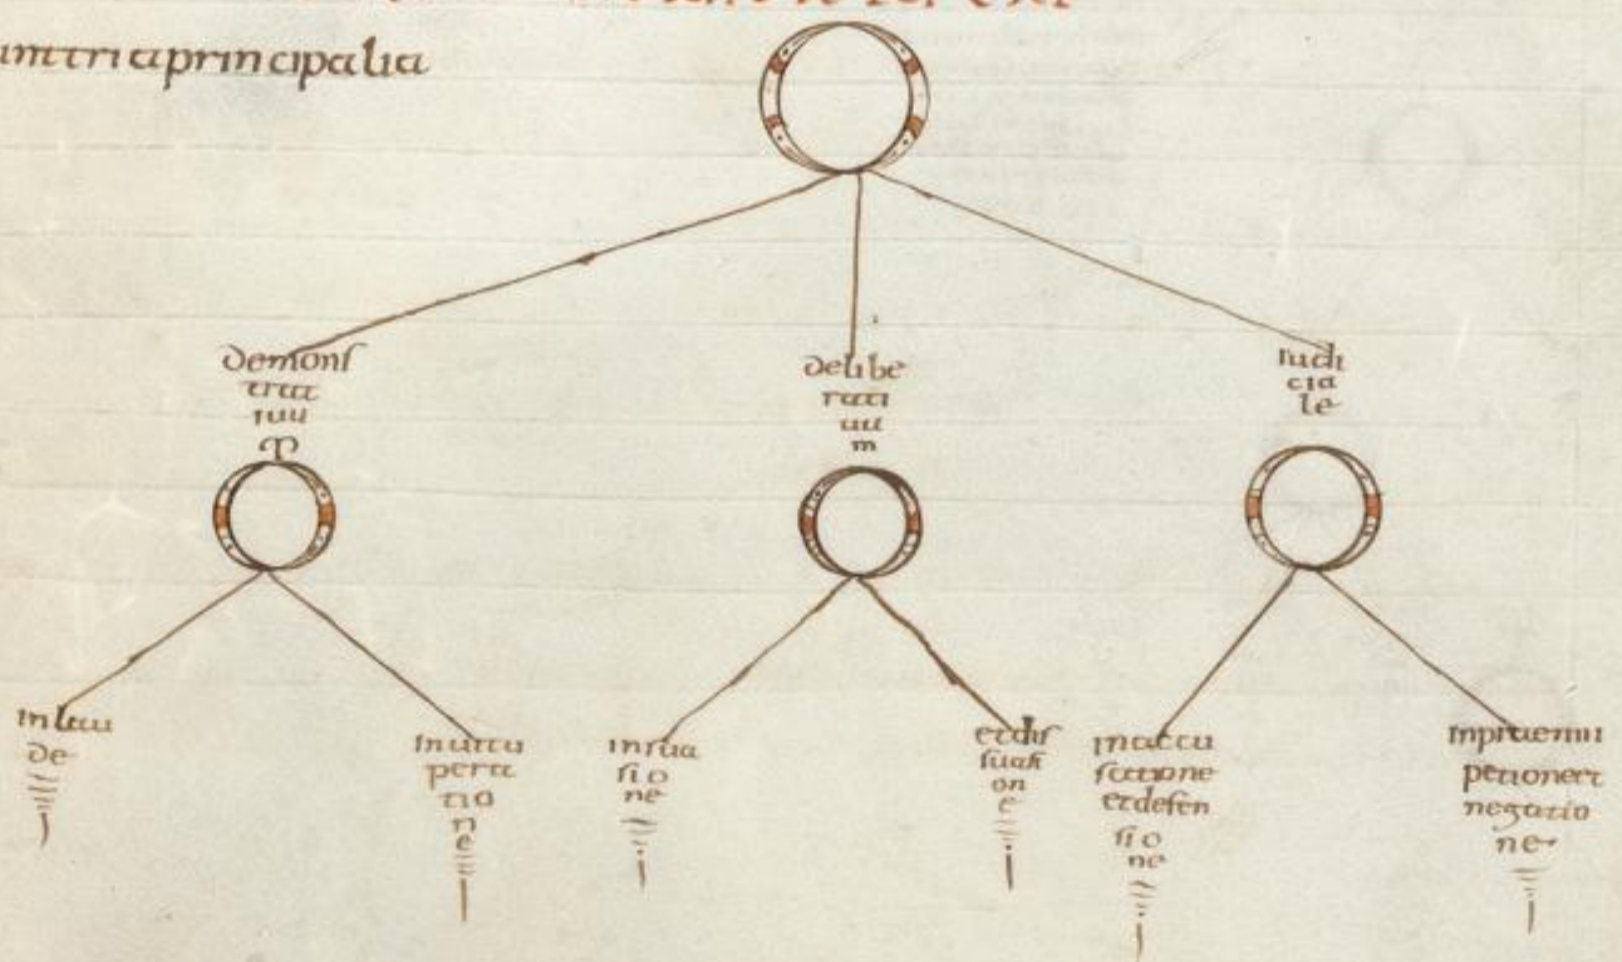 um tria principalia
demons
tra
tiuu
m
delibe
rati
uu
m
iudi
cia
le
in lau
de
in uitu
pera
tio
n
e
in sua
sio
ne
et dis
suasi
on
e
in accu
satione
et defen
sio
ne
in praemii
petione et
negatio
ne